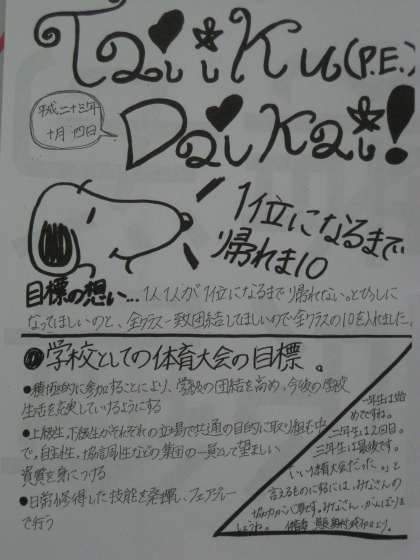 Taiiku(P.E.)
Daikai!
平成二十三年
十月四日
1位になるまで
帰れま10
目標の想い… 1人1人が1位になるまで帰れない。と必死に
なってほしいのと、全クラス一致団結してほしいので全クラスの10を入れました。
①学校としての体育大会の目標。
●積極的に参加することにより、学級の団結を高め、今後の学校
生活を充実していけるようにする
●上級生、下級生がそれぞれの立場で共通の目的に取り組む中
で、自主性、協調性などの集団の一員として望ましい
資質を身につける
●日常から修得した技能を発揮し、フェアプレー
で行う
一年生は始
めてですね。
二年生は2回目。
三年生は最後です。
いい体育大会だった。。と
言えるものにするには、みなさんの
協力が必要です。みなさん、がんばりま
しょうね。